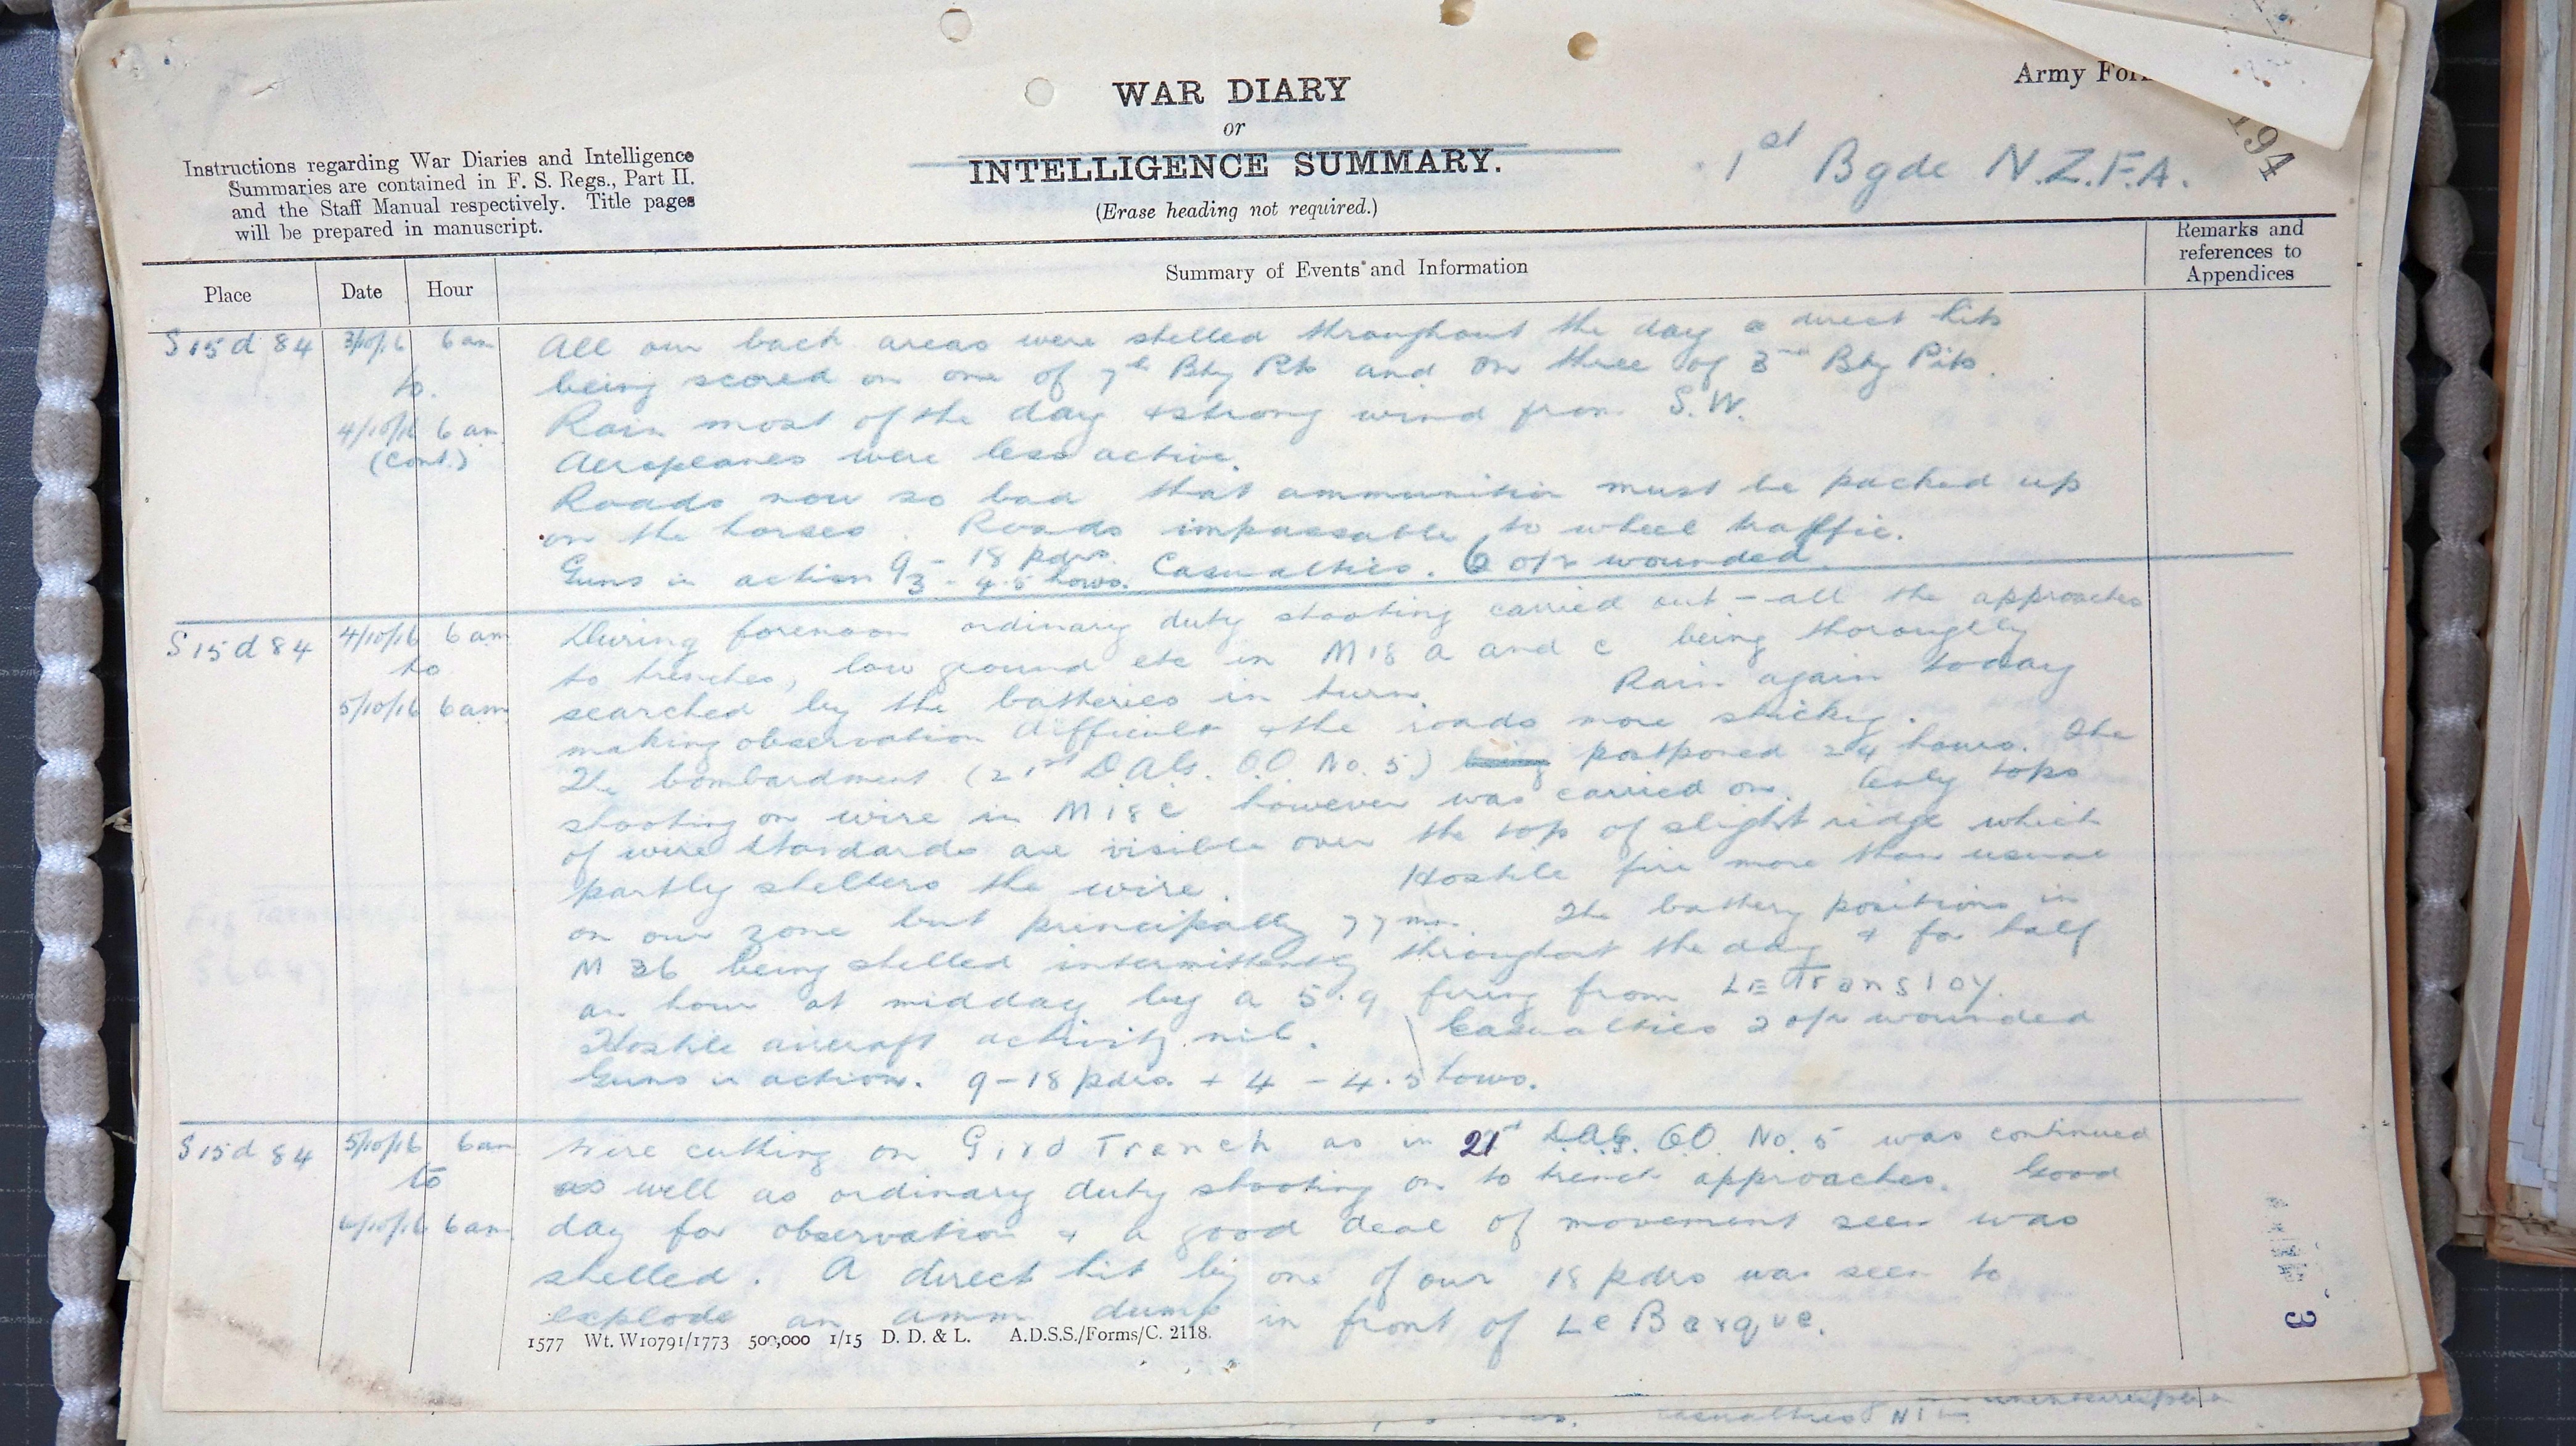 Army For
WAR DIARY
or
INTELLIGENCE SUMMARY.
(Erase heading not required.)
Instructions regarding War Diaries and Intelligence
Summaries are contained in F. S. Regs., Part II.
and the Staff Manual respectively. Title pages
will be prepared in manuscript.
1st Bgde N.Z.F.A.
194
Place
Date
Hour
Summary of Events and Information
Remarks and
references to
Appendices
S 15 d 84
3/10/16 6 am
to.
4/10/16 6 am
(Cont.)
All our back areas were shelled throughout the day a direct hits
being scored on one of 7th Bty Pits and on three of 3rd Bty Pits.
Rain most of the day & strong wind from S.W.
Aeroplanes were less active.
Roads now so bad that ammunition must be packed up
on the horses. Roads impassable to wheel traffic.
Guns in action 9 - 18 pdrs. 3 - 4.5 hows. Casualties. 6 o/r wounded.
S 15 d 84
4/10/16 6 am
to
5/10/16 6 am
During forenoon ordinary duty shooting carried out - all the approaches
to trenches, low ground etc in M18 a and c being thoroughly
searched by the batteries in turn. Rain again today
making observation difficult & the roads more sticky.
The bombardment (21st D.A's. O.O. No. 5) postponed 24 hours. The
shooting on wire in M18c however was carried on. Only tops
of wire standards are visible over the top of slight ridge which
partly shelters the wire. Hostile fire more than usual
on our zone but principally 77 mm. The battery positions in
M 36 being shelled intermittently throughout the day & for half
an hour at midday by a 5.9 firing from Le Transloy.
Hostile aircraft activity nil. Casualties 2 o/r wounded
Guns in action. 9 - 18 pdrs. + 4 - 4.5 hows.
S 15 d 84
5/10/16 6 am
to
6/10/16 6 am
Wire cutting on Gird Trench as in 21st D.A's. O.O. No. 5 was continued
as well as ordinary duty shooting on to trench approaches. Good
day for observation & a good deal of movement seen was
shelled. A direct hit by one of our 18 pdrs was seen to
explode an amm dump in front of Le Barque.
1577 Wt. W10791/1773 500,000 1/15 D. D. & L. A.D.S.S./Forms/C. 2118.
3
casualties Nil